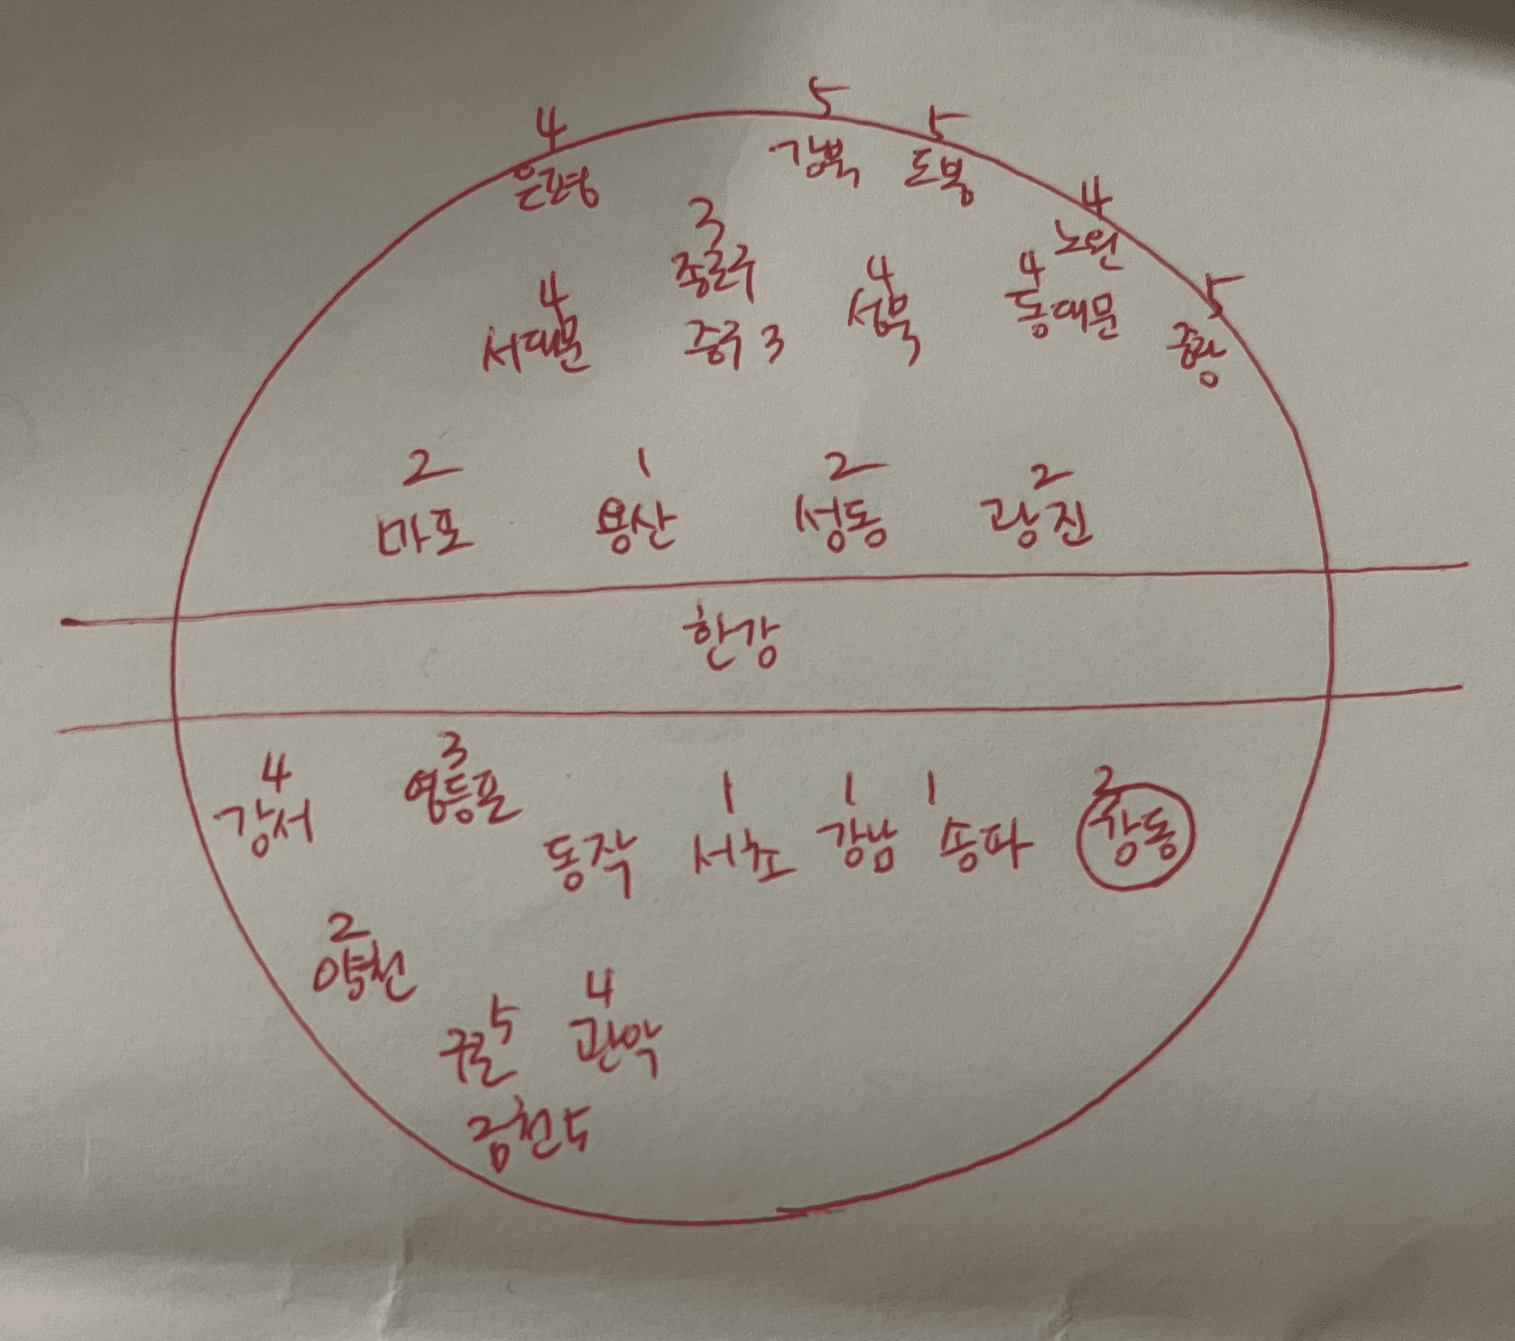 4
은평
5
강북
5
도봉
4
노원
3
종로구
중구 3
4
서대문
4
성북
4
동대문
5
중랑
2
마포
1
용산
2
성동
2
광진
한강
4
강서
3
영등포
동작
1
서초
1
강남
1
송파
2
강동
2
양천
5
구로
4
관악
금천 5